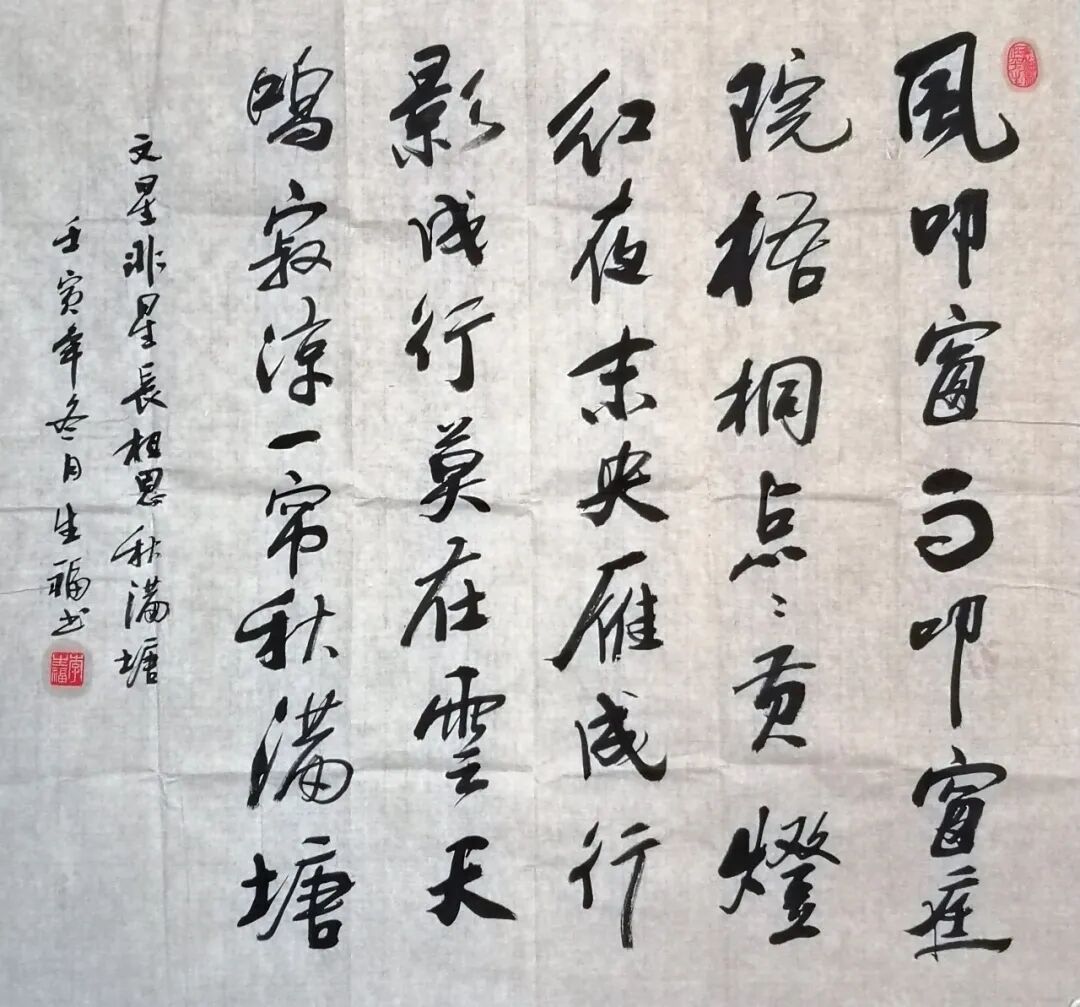 風叩窗雨叩窗庭
院梧桐点〻黄燈
红夜未央雁成行
影成行莫在雲天
鳴寂涼一帘秋满塘
文星非星長相思秋满塘
壬寅年冬月生福书
李生福